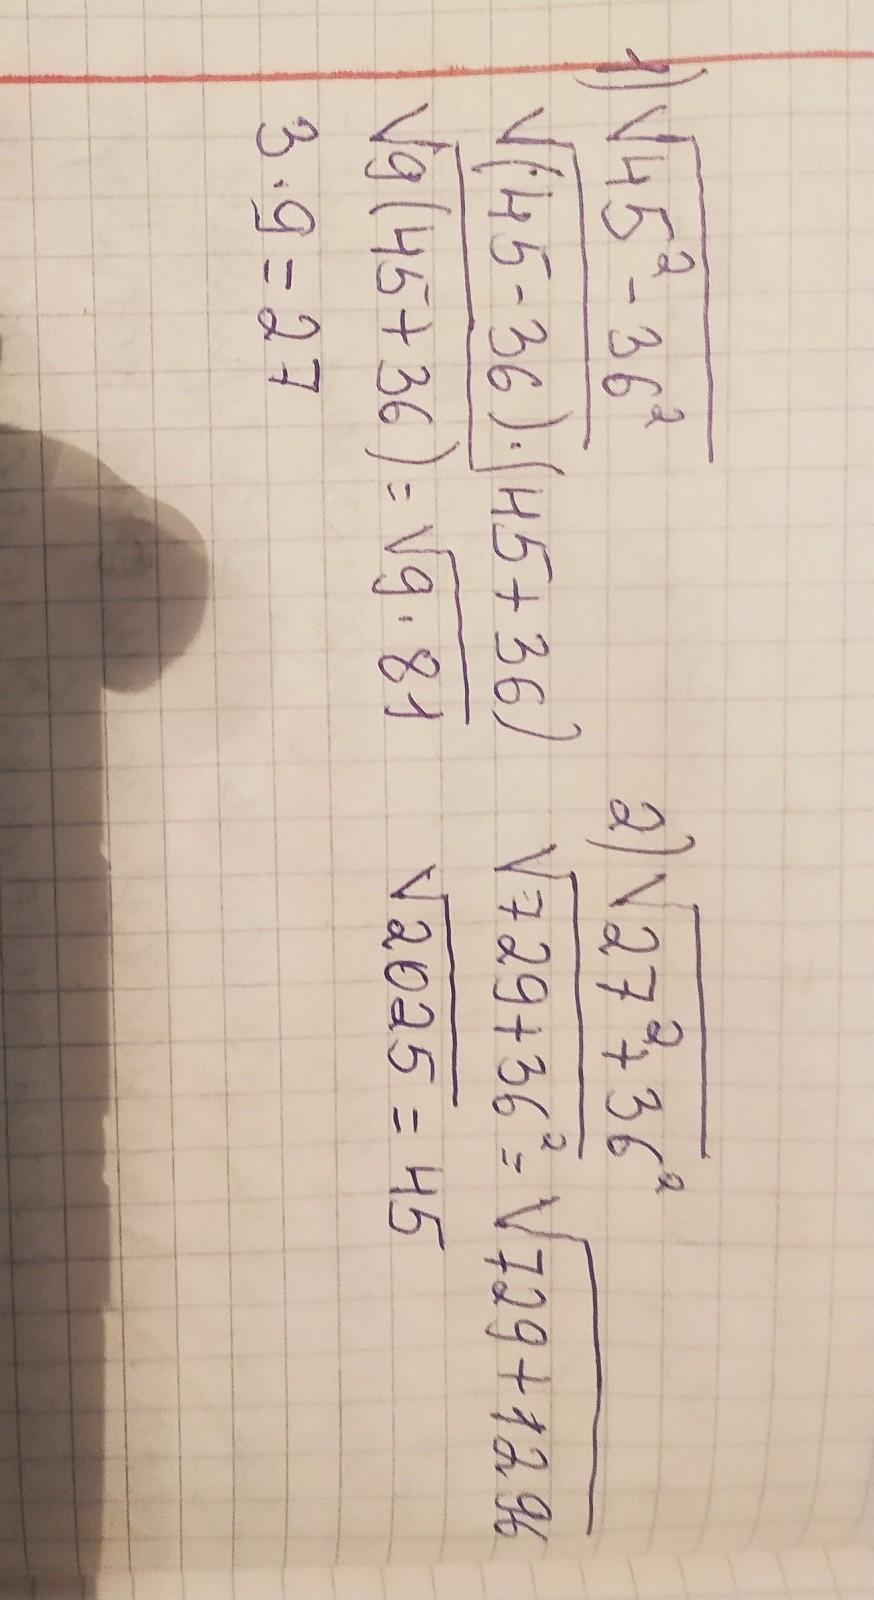 1) √45² - 36²
√(45 - 36) · (45 + 36)
√9(45 + 36) = √9 · 81
3 · 9 = 27
2) √27² + 36²
√729 + 36² = √729 + 1296
√2025 = 45